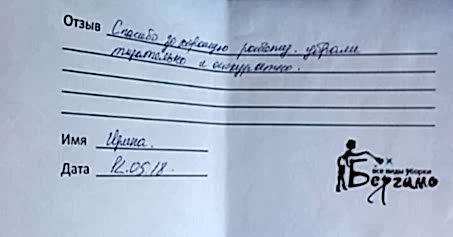 Отзыв Спасибо за хорошую работу. убрали
тщательно и аккуратно.
Имя Ирина.
Дата 12.05.18.
все виды уборки
Бергамо